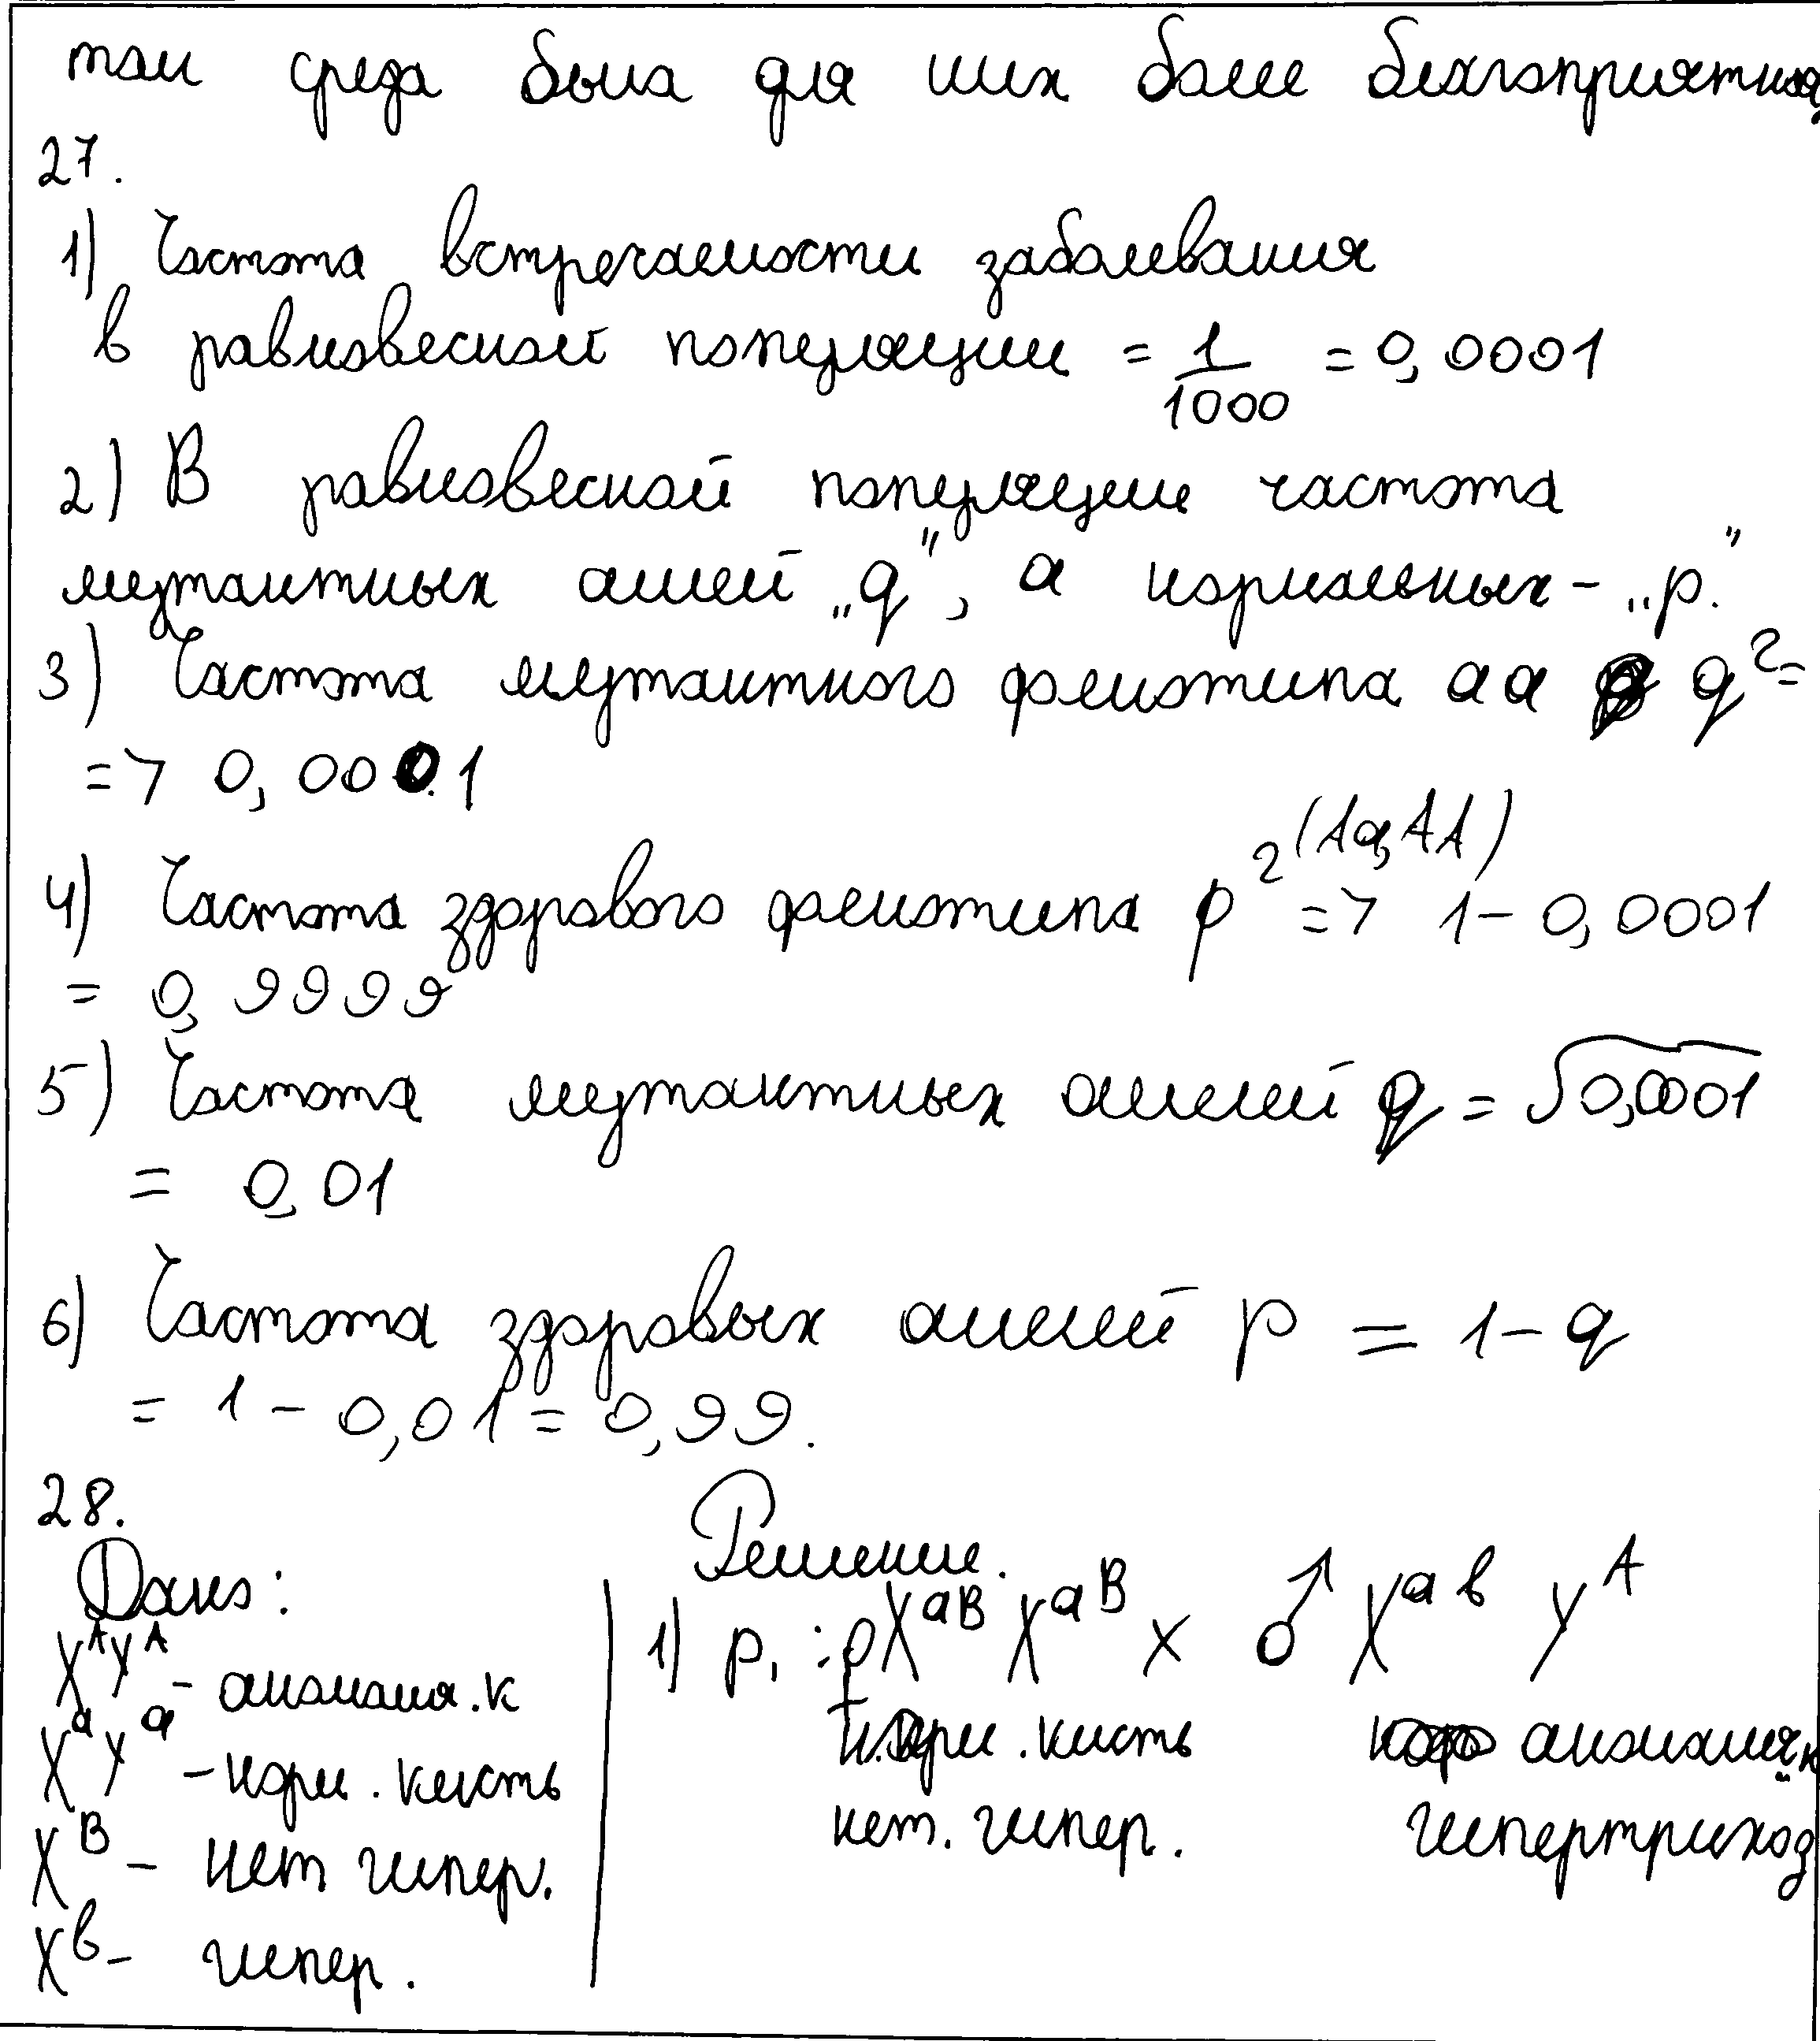 там среда была для них более благоприятная
27.
1) Частота встречаемости заболевания
в равновесной популяции = 1/1000 = 0,0001
2) В равновесной популяции частота
мутантных аллей „q“, а нормальных - „p.“
3) Частота мутантного фенотипа aa q² =
=> 0,0001
4) Частота здорового фенотипа p² (Aa, AA) => 1 - 0,0001
= 0,9999
5) Частота мутантных аллелей q = √0,0001
= 0,01
6) Частота здоровых аллелей p = 1 - q
= 1 - 0,01 = 0,99.
28.
Дано:
X^A Y^A - аномалия.к
X^a Y^a - норм. кисть
X^B - нет гипер.
X^в - гипер.
Решение.
1) P₁ : ♀ X^aB X^aB x ♂ X^aв Y^A
норм. кисть аномалия к
нет. гипер. гипертрихоз